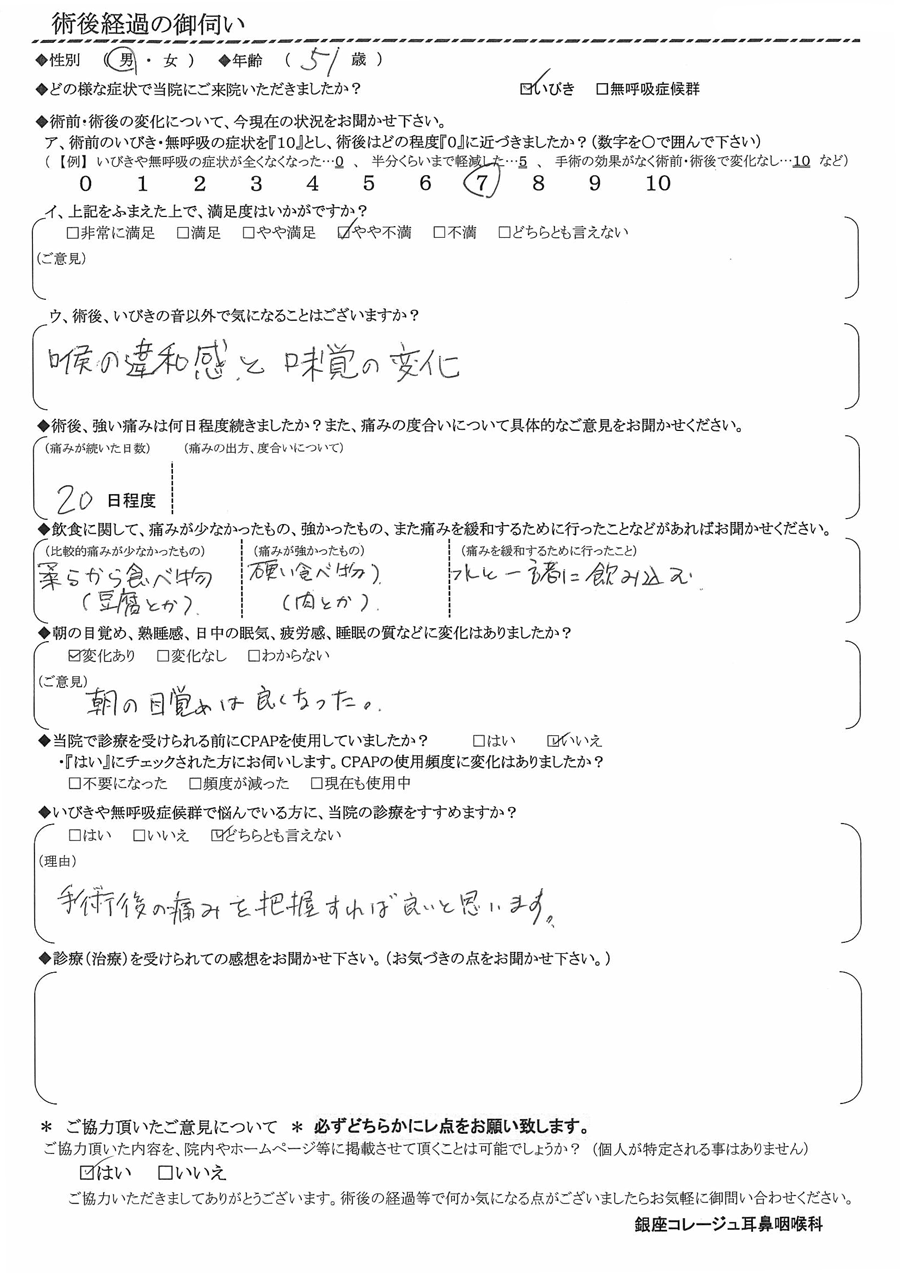 術後経過の御伺い
◆性別 （ 男 ・ 女 ） ◆年齢 （ 51 歳 ）
◆どの様な症状で当院にご来院いただきましたか？ ☑いびき □無呼吸症候群
◆術前・術後の変化について、今現在の状況をお聞かせ下さい。
ア、術前のいびき・無呼吸の症状を『10』とし、術後はどの程度『0』に近づきましたか？（数字を〇で囲んで下さい）
（ 【例】 いびきや無呼吸の症状が全くなくなった…0 、 半分くらいまで軽減した…5 、 手術の効果がなく術前・術後で変化なし…10 など）
0 1 2 3 4 5 6 7 8 9 10
イ、上記をふまえた上で、満足度はいかがですか？
□非常に満足 □満足 □やや満足 ☑やや不満 □不満 □どちらとも言えない
（ご意見）
ウ、術後、いびきの音以外で気になることはございますか？
喉の違和感、と 味覚の変化
◆術後、強い痛みは何日程度続きましたか？また、痛みの度合いについて具体的なご意見をお聞かせください。
（痛みが続いた日数） （痛みの出方、度合いについて）
20 日程度
◆飲食に関して、痛みが少なかったもの、強かったもの、また痛みを緩和するために行ったことなどがあればお聞かせください。
（比較的痛みが少なかったもの） （痛みが強かったもの） （痛みを緩和するために行ったこと）
柔らから食べ物 硬い食べ物） 水と一諸に飲み込む.
（豆腐とか）. （肉とか）.
◆朝の目覚め、熟睡感、日中の眠気、疲労感、睡眠の質などに変化はありましたか？
☑変化あり □変化なし □わからない
（ご意見）
朝の目覚めは良くなった。
◆当院で診療を受けられる前にCPAPを使用していましたか？ □はい ☑いいえ
・『はい』にチェックされた方にお伺いします。CPAPの使用頻度に変化はありましたか？
□不要になった □頻度が減った □現在も使用中
◆いびきや無呼吸症候群で悩んでいる方に、当院の診療をすすめますか？
□はい □いいえ ☑どちらとも言えない
（理由）
手術後の痛みを把握すれば良いと思います。
◆診療（治療）を受けられての感想をお聞かせ下さい。（お気づきの点をお聞かせ下さい。）
＊ ご協力頂いたご意見について ＊ 必ずどちらかにレ点をお願い致します。
ご協力頂いた内容を、院内やホームページ等に掲載させて頂くことは可能でしょうか？ （個人が特定される事はありません）
☑はい □いいえ
ご協力いただきましてありがとうございます。術後の経過等で何か気になる点がございましたらお気軽に御問い合わせください。
銀座コレージュ耳鼻咽喉科